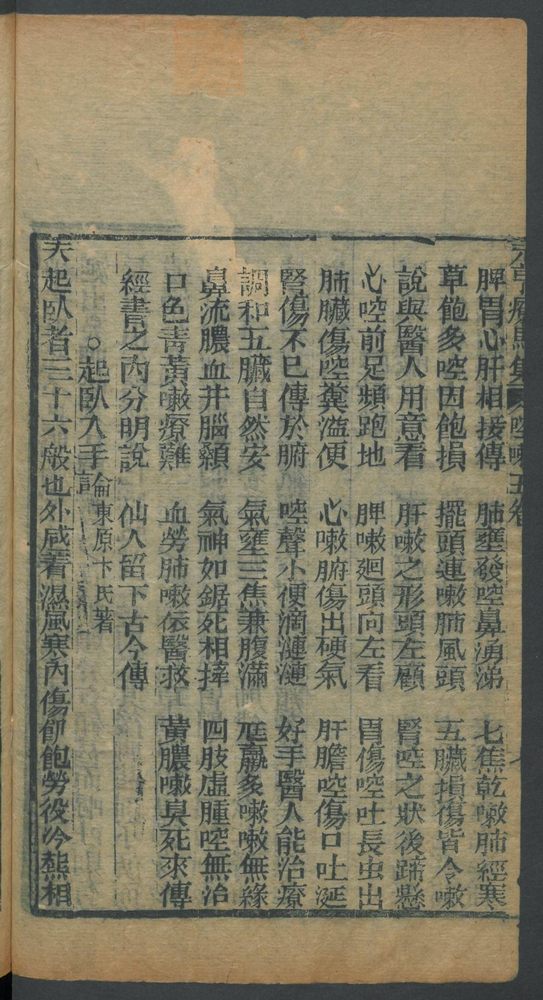 元亨療馬集 嗽 五卷
脾胃心肝相接傳 肺壅發啌鼻湧涕 七焦乾嗽肺經寒
草飽多啌因飽損 擺頭連嗽肺風頭 五臟損傷皆令嗽
說與醫人用意看 肝嗽之形頭左顧 腎啌之狀後蹄懸
心啌前足頻跑地 脾嗽廻頭向左看 胃傷啌吐長虫出
肺臟傷啌糞溢便 心嗽腑傷出硬氣 肝膽啌傷口吐涎
腎傷不巳傳於腑 啌聲小便滴漣漣 好手醫人能治療
調和五臟自然安 氣壅三焦兼腹滿 尫羸多嗽嗽無緣
鼻流膿血并腦顙 氣神如鋸死相擇 四肢虛腫啌無治
口色青黃嗽療難 血勞肺嗽依醫救 黄膿嗽臭死來傳
經書之內分明說 仙人留下古今傳
○起臥入手論 東原卞氏著
夫起臥者三十六般也外感着濕風寒內傷卽飽勞役冷熱相